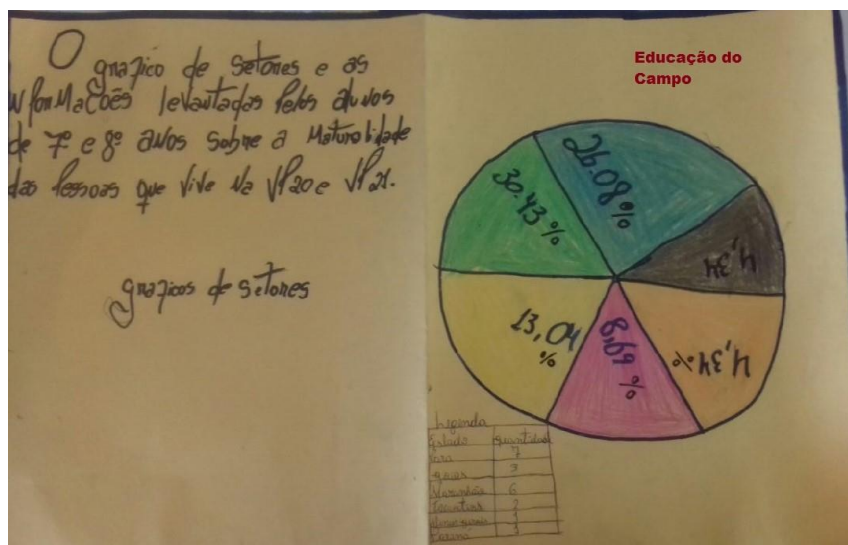 O grafico de Setores e as
informações levantadas pelos alunos
de 7º e 8º anos sobre a Naturalidade
das Pessoas que vive na VP20 e VP21.
graficos de Setores
Educação do
Campo
26.08%
30.43%
4,34
13,04
%
8,69%
4,34%
Legenda
Estado Quantidad
Para 7
3
Maranhão 6
Tocantins 2
1
1